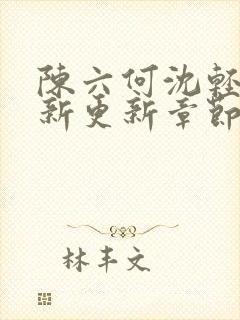 陳六何沈輕
新更新章節
林丰文